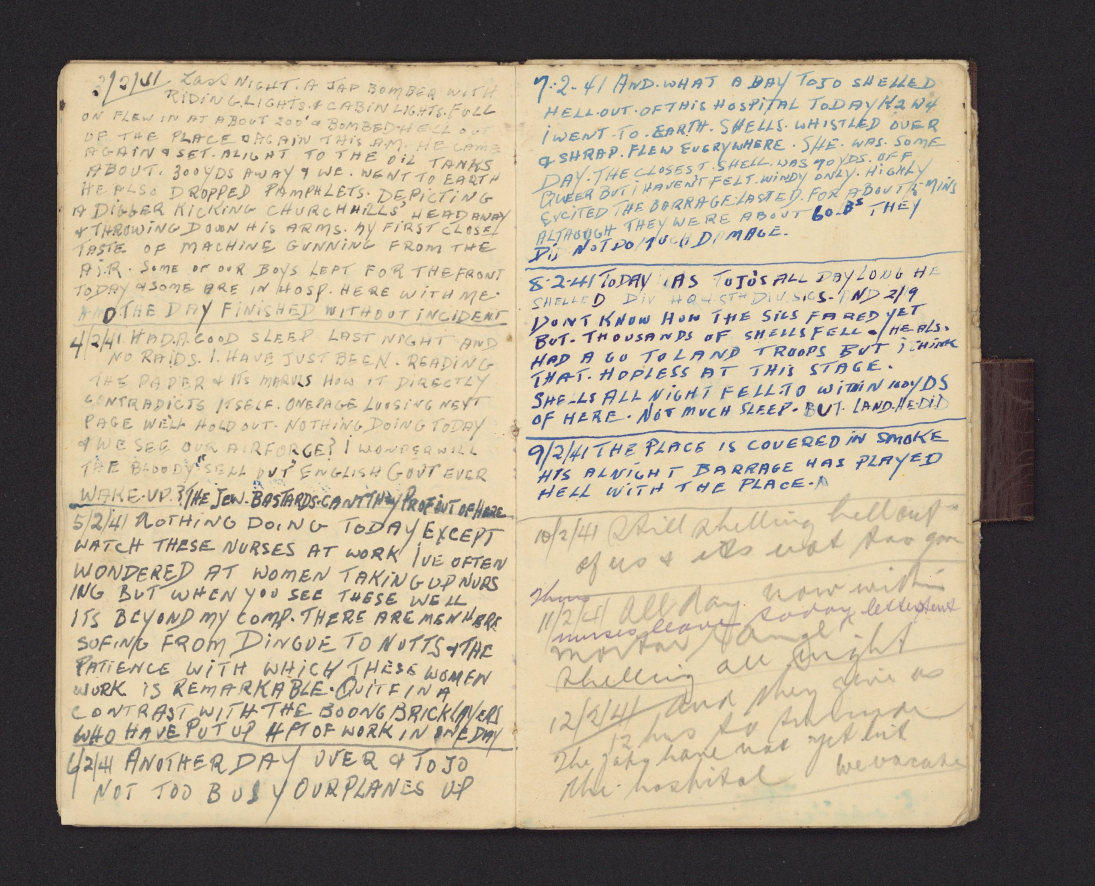 2/2/41 Last NIGHT. A JAP BOMBER WITH
RIDINGLIGHTS. & CABIN LIGHTS. FULL
ON FLEW IN AT ABOUT 200' & BOMBED HELL OUT
OF THE PLACE & AGAIN THIS A.M. HE CAME
AGAIN & SET. ALIGHT TO THE OIL TANKS
ABOUT. 300YDS AWAY & WE. WENT TO EARTH
HE ALSO DROPPED PAMPHLETS. DEPICTING
A DIGGER KICKING CHURCHHILLS' HEAD AWAY
& THROWING DOWN HIS ARMS. MY FIRST CLOSE
TASTE OF MACHINE GUNNING FROM THE
AIR. SOME OF OUR BOYS LEFT FOR THE FRONT
TODAY & SOME ARE IN HOSP. HERE WITH ME.
AND. THE DAY FINISHED WITHOUT INCIDENT
4/2/41 HAD. A GOOD SLEEP LAST NIGHT AND
NO RAIDS. I. HAVE JUST BEEN. READING
THE PAPER & ITS MARVLS HOW IT DIRECTLY
CONTRADICTS ITSELF. ONE PAGE LOOSING NEXT
PAGE WE'LL HOLD OUT. NOTHING DOING TODAY
& WE SEE OUR AIRFORCE? I WONDER WILL
THE BLOODY "SELL OUT" ENGLISH GOVT EVER
WAKE. UP? THE JEW. BASTARDS. CANT THEY PROFIT OUT OF HERE
5/2/41 NOTHING DOING TODAY EXCEPT
WATCH THESE NURSES AT WORK I'VE OFTEN
WONDERED AT WOMEN TAKING UP NURS
ING BUT WHEN YOU SEE THESE WELL
ITS BEYOND MY COMP. THERE ARE MEN HERE
SUFING FROM DINGUE TO NUTTS & THE
PATIENCE WITH WHICH THESE WOMEN
WORK IS REMARKABLE. QUITE IN A
CONTRAST WITH THE BOONG BRICKLAYERS
WHO HAVE PUT UP 4 FT OF WORK IN ONE DAY
6/2/41 ANOTHER DAY OVER & TOJO
NOT TOO BUSY OUR PLANES UP
7.2.41 AND. WHAT A DAY TOJO SHELLED
HELL. OUT. OF THIS HOSPITAL TODAY
I WENT. TO. EARTH. SHELLS. WHISTLED OVER
& SHRAP. FLEW EVERYWHERE. SHE. WAS. SOME
DAY. THE CLOSEST. SHELL. WAS 70 YDS. OFF
QUEER BUT I HAVENT FELT. WINDY ONLY. HIGHLY
EXCITED THE BARRAGE. LASTED. FOR ABOUT MINS
ALTHOUGH THEY WERE ABOUT 60. THEY
DID NOT DO MUCH DAMAGE.
8.2.41 TODAY WAS TOJO'S ALL DAY LONG HE
SHELLED DIV HQ. 4 5TH DIV. SIGS. AND 2/9
DONT KNOW HOW THE SIGS FARED YET
BUT. THOUSANDS OF SHELLS FELL & HE ALS.
HAD A GO TO LAND TROOPS BUT I THINK
THAT. HOPLESS AT THIS STAGE.
SHELLS ALL NIGHT FELL. TO WITHIN 100YDS
OF HERE. NOT MUCH SLEEP. BUT. LAND. HE. DID
9/2/41 THE PLACE IS COVERED IN SMOKE
HIS ALNIGHT BARRAGE HAS PLAYED
HELL WITH THE PLACE.
10/2/41 Still shelling hell out
of us & its not too goo
11/2/41 All day. now within
nurses leave today
mortar range
shelling all night
12/2/41 and they give us
12 hrs to surrender
The japs have not yet hit
the hospital we vacate